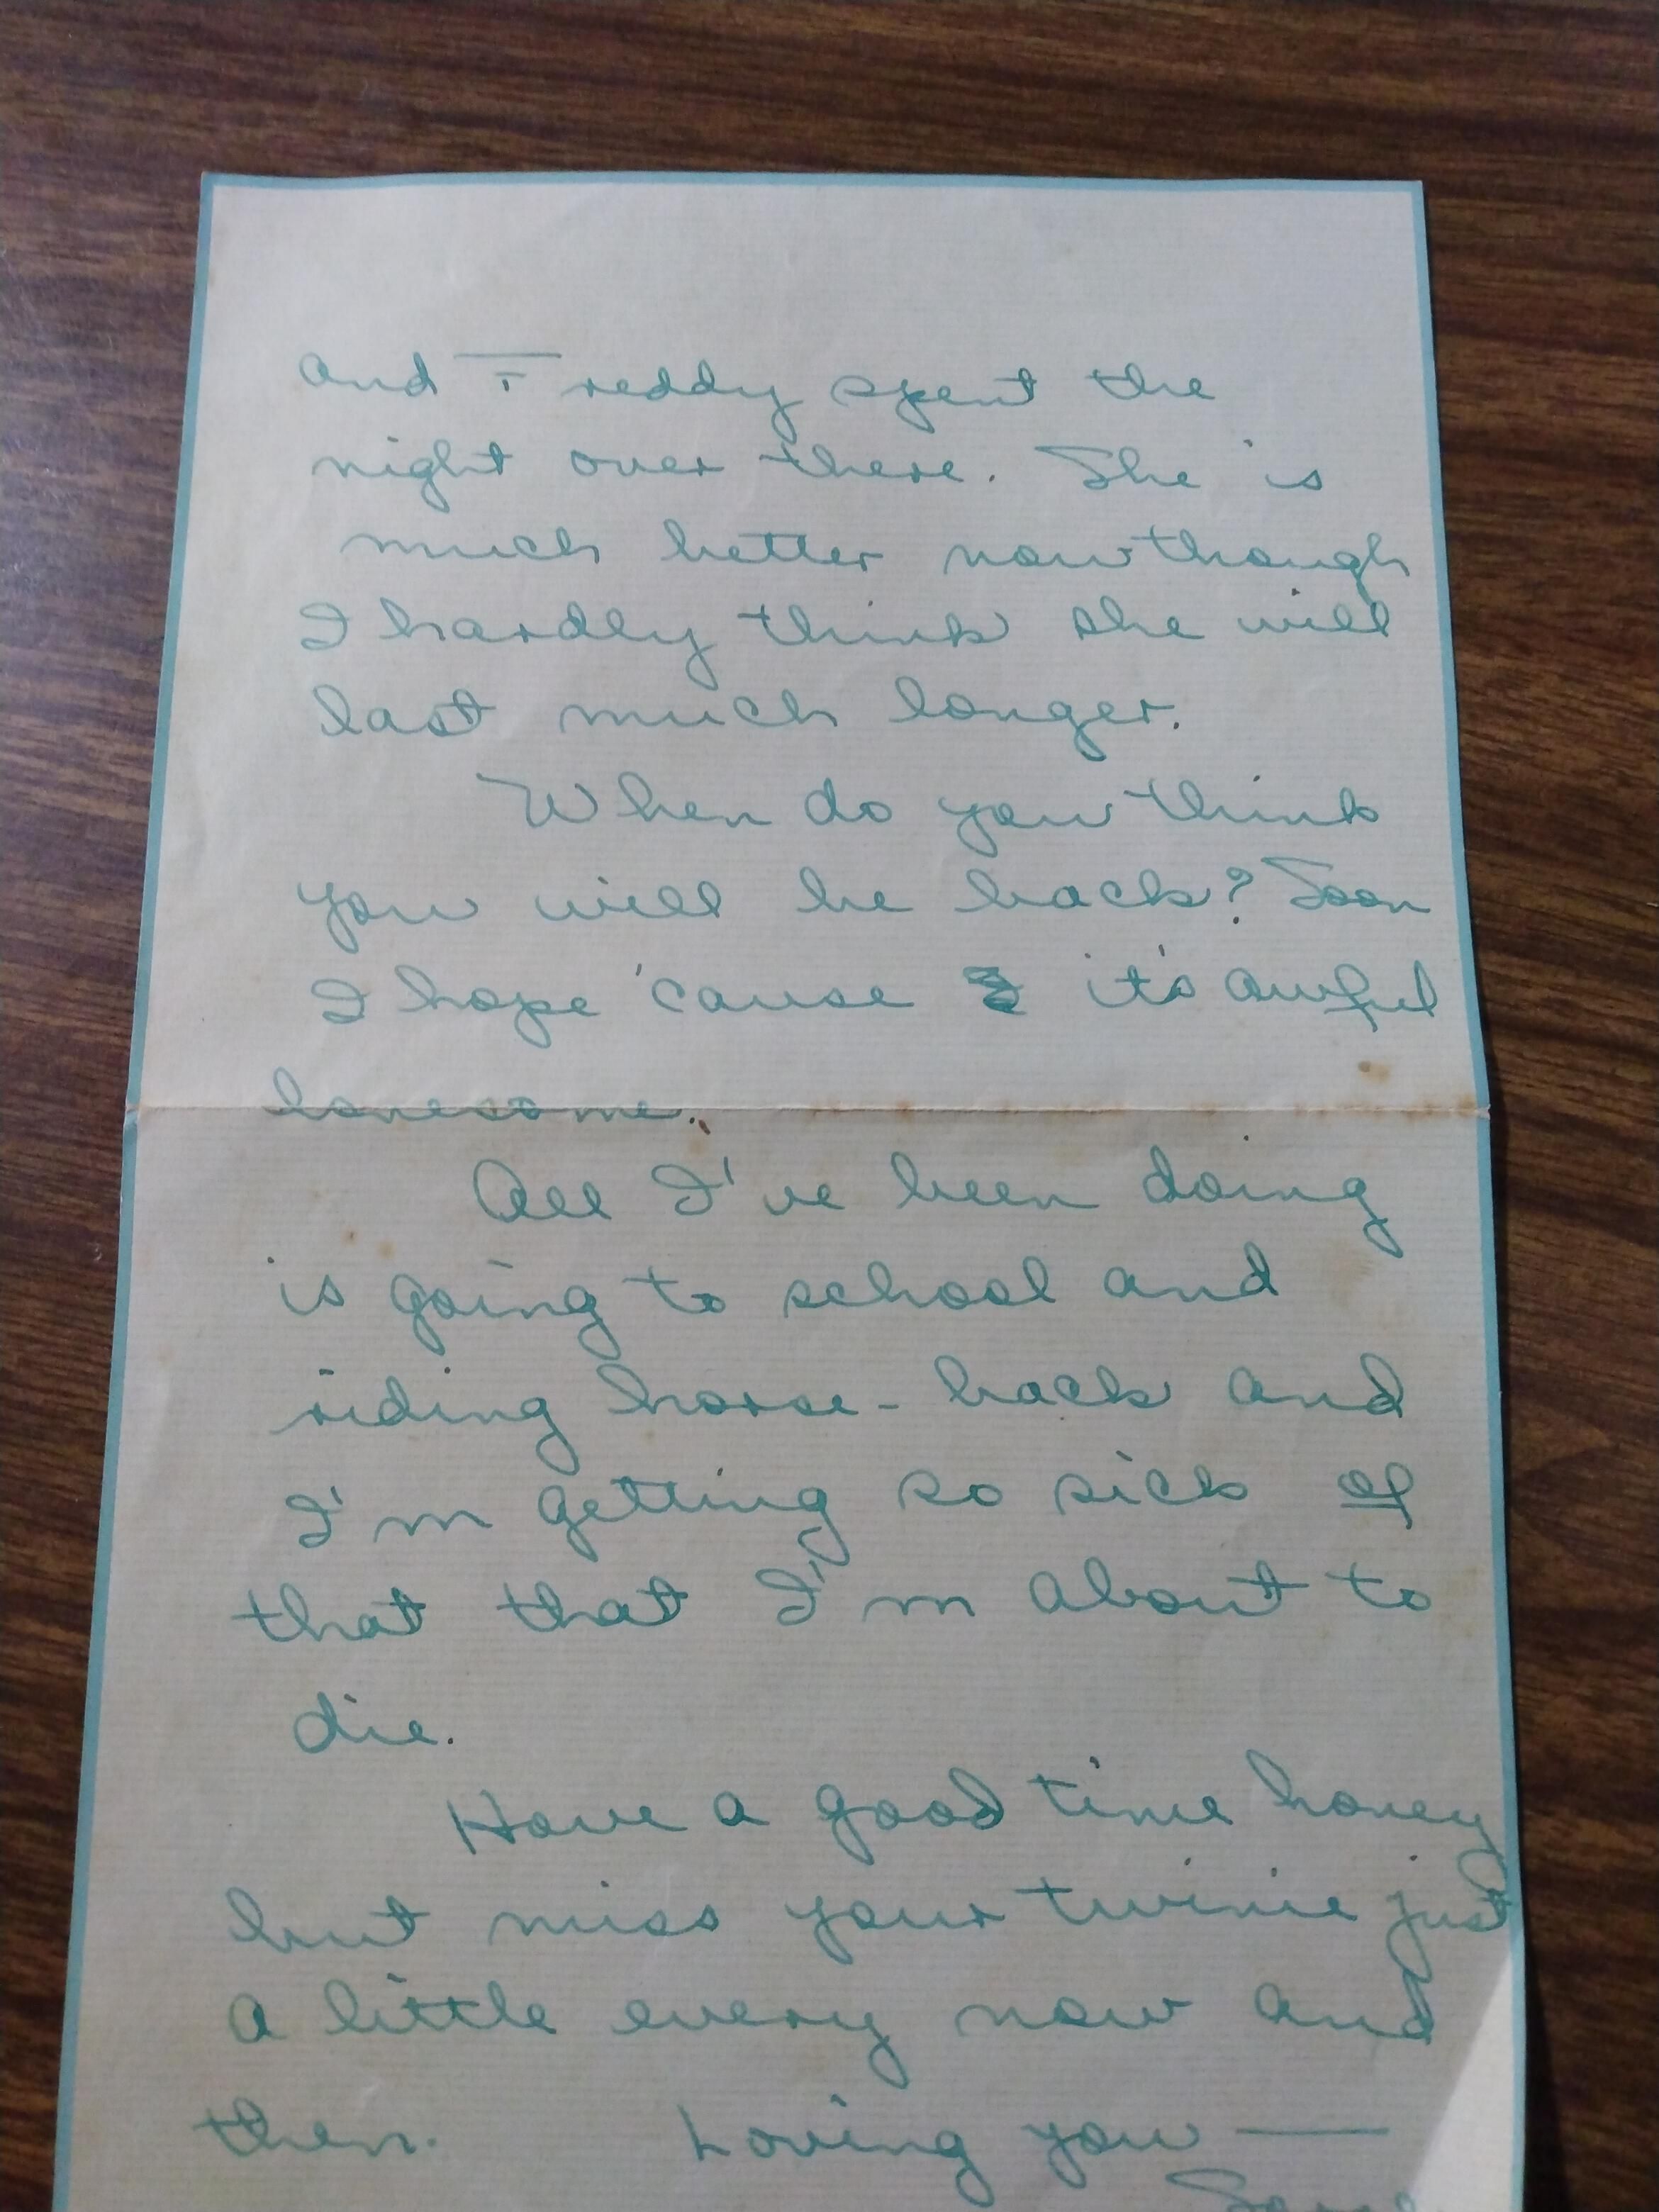 and Freddy spent the
night over there. She is
much better now though
I hardly think she will
last much longer.
When do you think
you will be back? Soon
I hope 'cause it's awful
lonesome.
All I've been doing
is going to school and
riding horse-back and
I'm getting so sick of
that that I'm about to
die.
Have a good time honey
but miss your twinie just
a little every now and
then. Loving you —